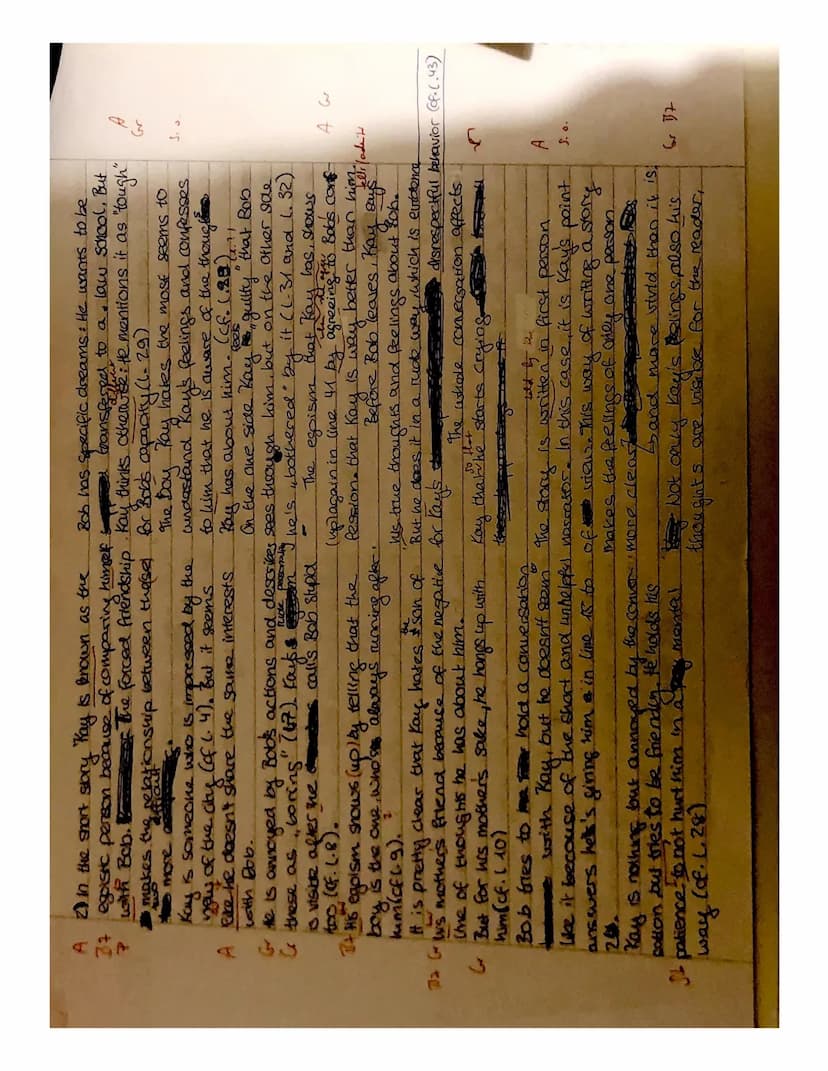 2) In the short story "Kay is known as the
egoistic person because of comparing himself
with Bob. The forced friendship
makes the relationship between them
more difficult
Kay is someone who is impressed by the
view of the city (cf. l. 4). But it seems
like he doesn't share the same interests
with Bob.
He is annoyed by Bob's actions and describes
these as "boring" (l. 7). Kay's
is visible after he calls Bob stupid
too (cf. l. 8).
His egoism shows (up) by telling that the
boy is the one, who's always running after
him (cf. l. 9).
It is pretty clear that Kay hates the son of
his mothers friend because of the negative
line of thoughts he has about him.
But for his mothers sake, he hangs up with
him (cf. l. 10)
Bob tries to hold a conversation
with Kay, but he doesn't seem to
like it because of the short and unhelpful
answers he's giving him in line 15 to
20.
Kay is nothing but annoyed by the conver-
sation but tries to be friendly. He holds his
patience to not hurt him in a mental
way (cf. l. 28)
Bob has specific dreams: He wants to be
transferred to a law school. But
Kay thinks otherwise: He mentions it as "tough"
for Bob's capacity (l. 29)
The boy Kay hates the most seems to
understand Kay's feelings and confesses
to him that he is aware of the thoughts
Kay has about him. (cf. l. 29)
On the one side Kay feels "guilty" that Bob
sees through him, but on the other side
he's "bothered" by it (l. 31 and l. 32)
The egoism that Kay has, shows
(up) again in line 41 by agreeing to Bob's con-
fession, that Kay is way better than him.
Before Bob leaves, Kay says
his true thoughts and feelings about Bob.
But he does it in a rude way, which is
for Kay's disrespectful behavior (cf. l. 43)
The whole conversation affects
Kay that he starts crying
The story is written in first person
narrator. In this case, it is Kay's point
of view. This way of writing a story
makes the feelings of only one person
more clear
and more vivid than it is.
Not only Kay's feelings, also his
thoughts are visible for the reader,